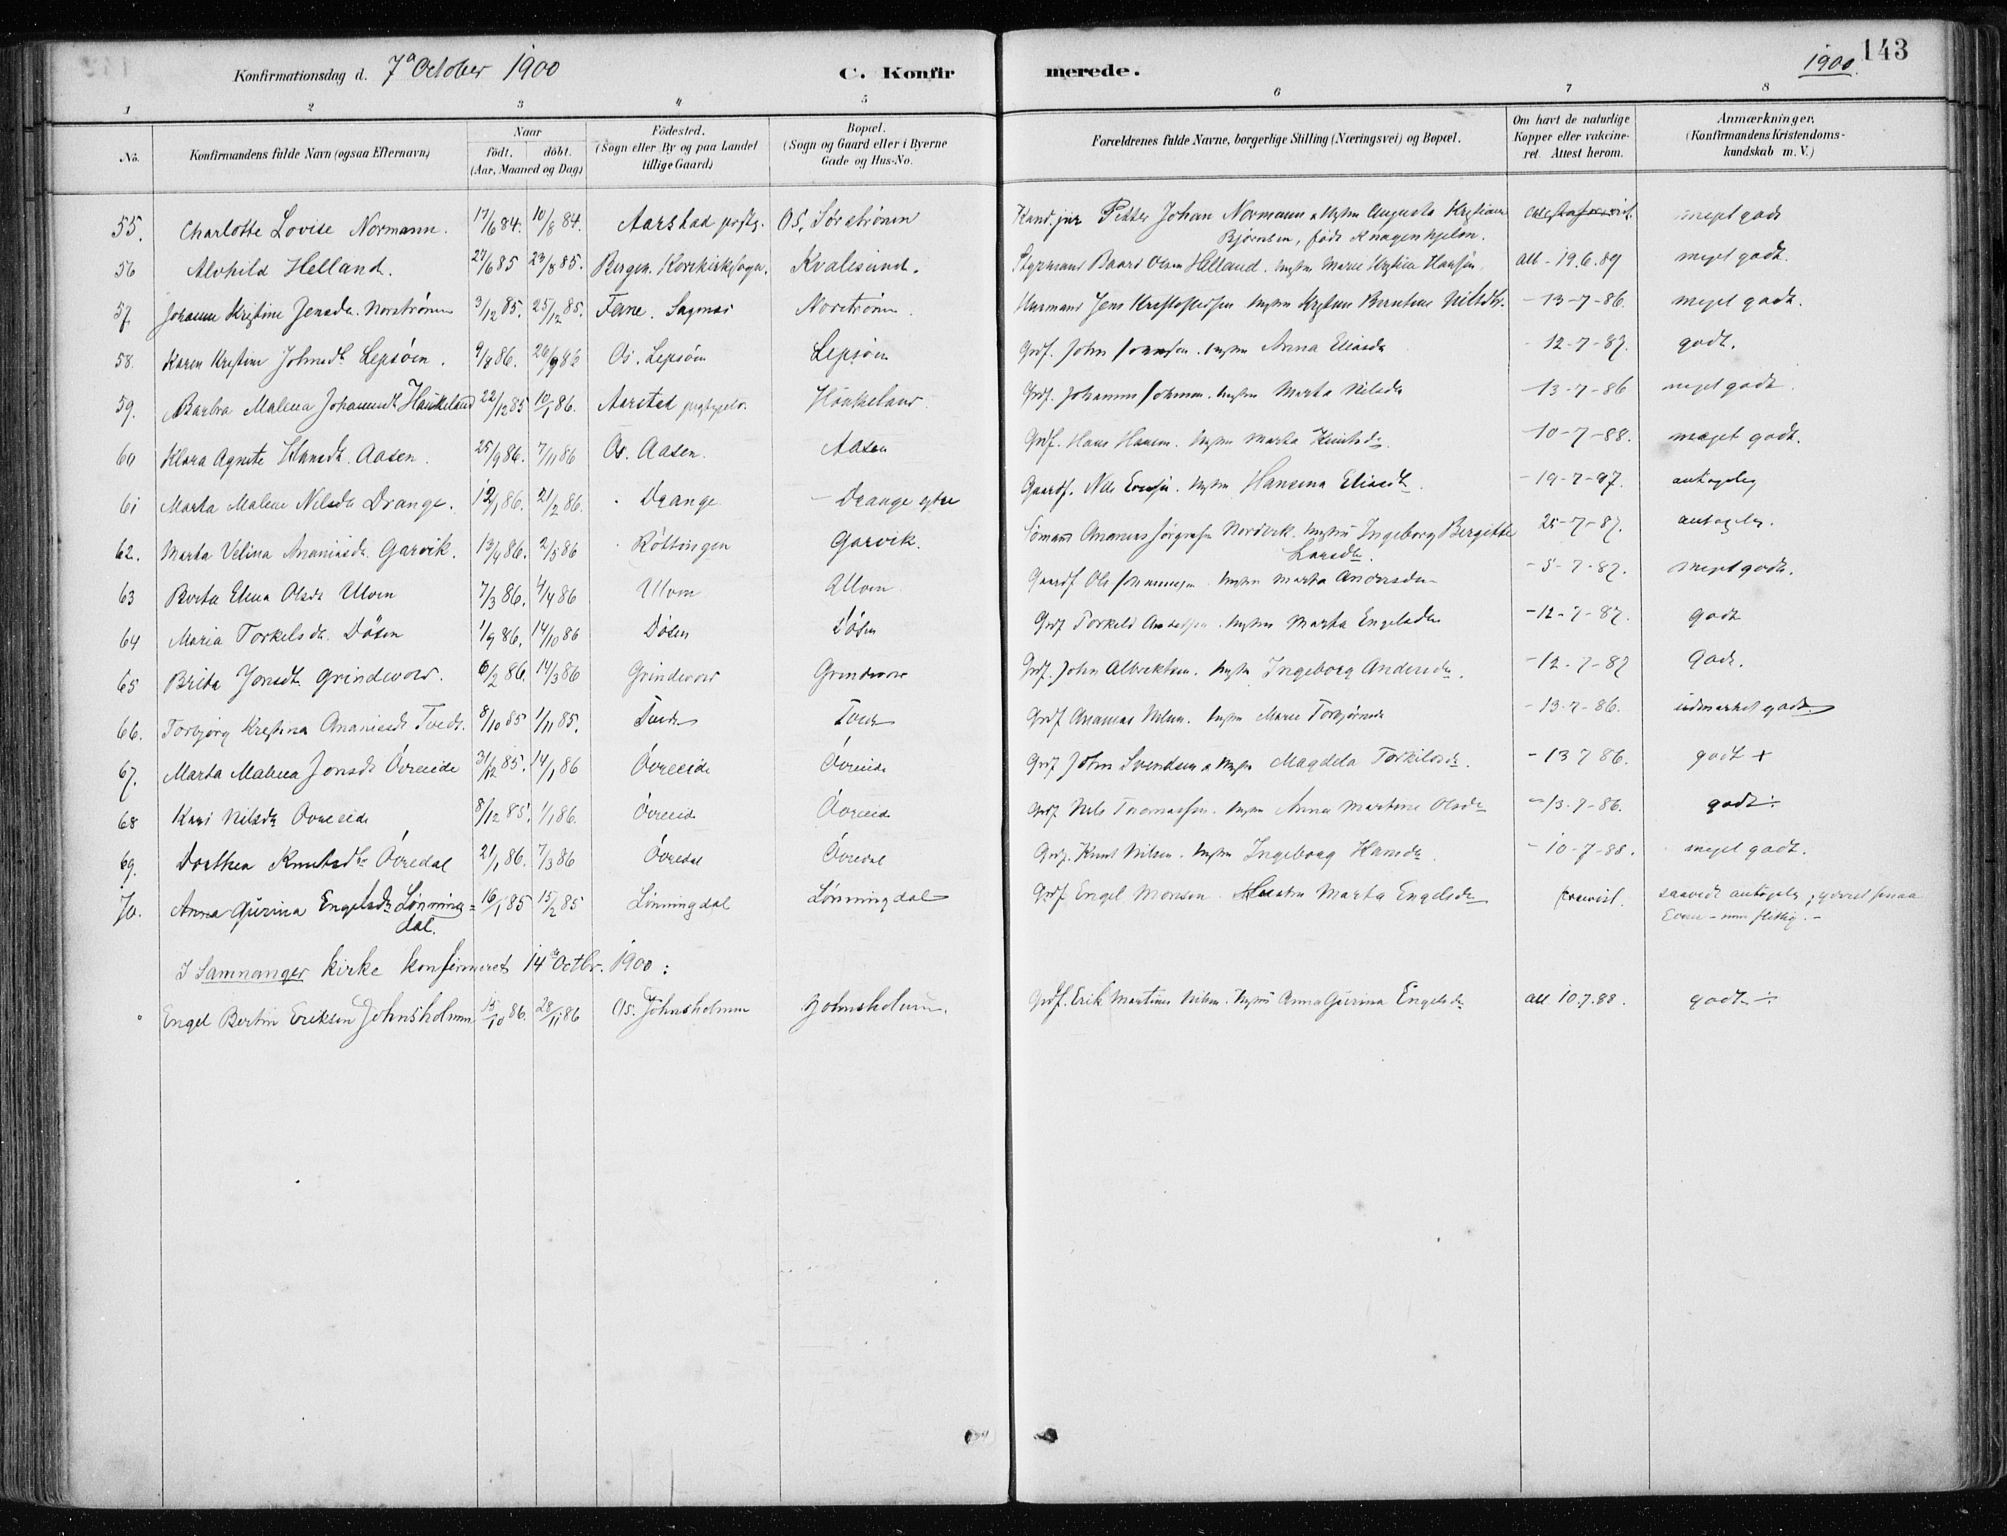 Konfirmationsdag d. 7de October 1900
C. Konfirmerede.
1900.
143
1 2 3 4 5 6 7 8
No.
Konfirmandens fulde Navn (ogsaa Efternavn)
Naar
født. døbt.
(Aar, Maaned og Dag)
Fødested.
(Sogn eller By og paa Landet
tillige Gaard)
Bopæl.
(Sogn og Gaard eller i Byerne
Gade og Hus-No.
Forældrenes fulde Navne, borgerlige Stilling (Næringsvei) og Bopæl.
Om havt de naturlige
Kopper eller vakcine-
ret. Attest herom.
Anmærkninger.
(Konfirmandens Kristendoms-
kundskab m. V.)
55. Charlotte Lovise Normann. 17/6 84. 10/8 84. Aarstad prstg. Os, Sørströnen Kand. jur Petter Johan Normann & Hustru Augusta Kristiane meget godt
Bjørnsen, født Knagenhjelm.
56 Alvhild Helland. 27/6 85 23/8 85. Bergen. Korskirksogn. Kvalesund. Styrmand Baard Olsen Helland. Hustru Marie Kristine Hansen att - 19.6.89 meget godt.
57. Johanne Kristine Jensdtr. Norströnen 3/12 85. 25/12 85. Fane. Norströnen. Jens Kristoffersen Hustru Kristine Berntine Nilsdtr. - 13-7-86. meget godt.
58. Karen Kristine Johnsdtr Lepsøen. 9/8 86. 26/9 86 Os. Lepsöen Lepsöen Grdf. John Hustru Anna Eliasdtr - 12-7-87. godt.
59. Barbra Malena Johannesdtr Haukeland 22/12 85 10/1 86. Aarstad Haukeland Grdf. Johannes Hustru Marta Nilsdtr - 13-7-86 meget godt.
60 Klara Agnete Hansdtr. Aasen. 25/9 86. 7/11 86 Os. Aasen. Aasen Grdf. Hans Hansen. Hustru Marta Knutsdtr. - 10-7-88. meget godt.
61 Marta Malene Nilsdtr Drange. 12/1 86. 21/2 86. Drange - Drange ytre Gaardf. Nils Hustru Hansena Eliasdtr. - 19-7-87. antagelig
62. Marta Velina Ananiasdtr. Garvik. 13/4 86. 2/5 86 Röttingen Garvik. Sömand Ananias Nordvik. Hustru Ingeborg Bergitte 25-7-87. antagelig.
Larsdtr.
63 Berta Elena Olsdtr Ulven 7/3 86. 4/4 86 Ulven Ulven Gaardf Ole Johannesen. Hustru Marta Andersdtr - 5-7-87. meget godt.
64 Maria Torkelsdtr. Dösen 1/9 86. 14/10 86 Dösen Dösen Grdf Torkeld Hustru Marta Engelsdtr - 12-7-87. godt
65 Brita Jonsdtr. Grindevold. 6/2 86. 14/3 86 Grindevold Grindevold Grdf. John Albriktsen. Hustru Ingeborg Andersdtr. - 12-7-87 Godt.
66. Torbjørg Kristina Ananiasdtr Tveit. 8/10 85 1/11 85. Tveit Tveit Grdf Ananias Nilsen. Hustru Marie Torbjörnsdtr - 13-7-86. udmærket godt
67. Marta Malena Jonsdtr Övreeide 31/12 85. 14/1 86 Övreeide Övreeide Grdf John Svendsen & Hustru Magdela Torkilsdtr. - 13 7 86. godt +
68 Kari Nilsdtr Övreeide 8/12 85. 1/1 86. Övreeide Övreeide Grdf Nils Thomassen. Hustru Anna Martine Olsdtr - 13-7-86. godt ÷
69. Dorthea Knutsdtr Övredal 21/1 86. 7/3 86 Övredal Övredal Grdf. Knut Nilsen. Hustru Ingeborg Hansdtr. - 10-7-88. meget godt.
70. Anna Gurina Engelsdtr Lönning= 16/1 85 15/2 85 Lönningdal Lönningdal Grdf Engel Monsen. Hustru Marta Engelsdtr antagelig;
dal. Evner - men flittig. -
I Samnanger kirke konfirmeret 14de Octbr. 1900:
Engel Bertin Eriksen Johnsholmen 15/10 86. 28/11 86 Os. Johnsholmen Johnsholmen. Grdf. Erik Martinus Nilsen. Hustru Anna Gurina Engelsdtr att 10.7.88. godt ÷